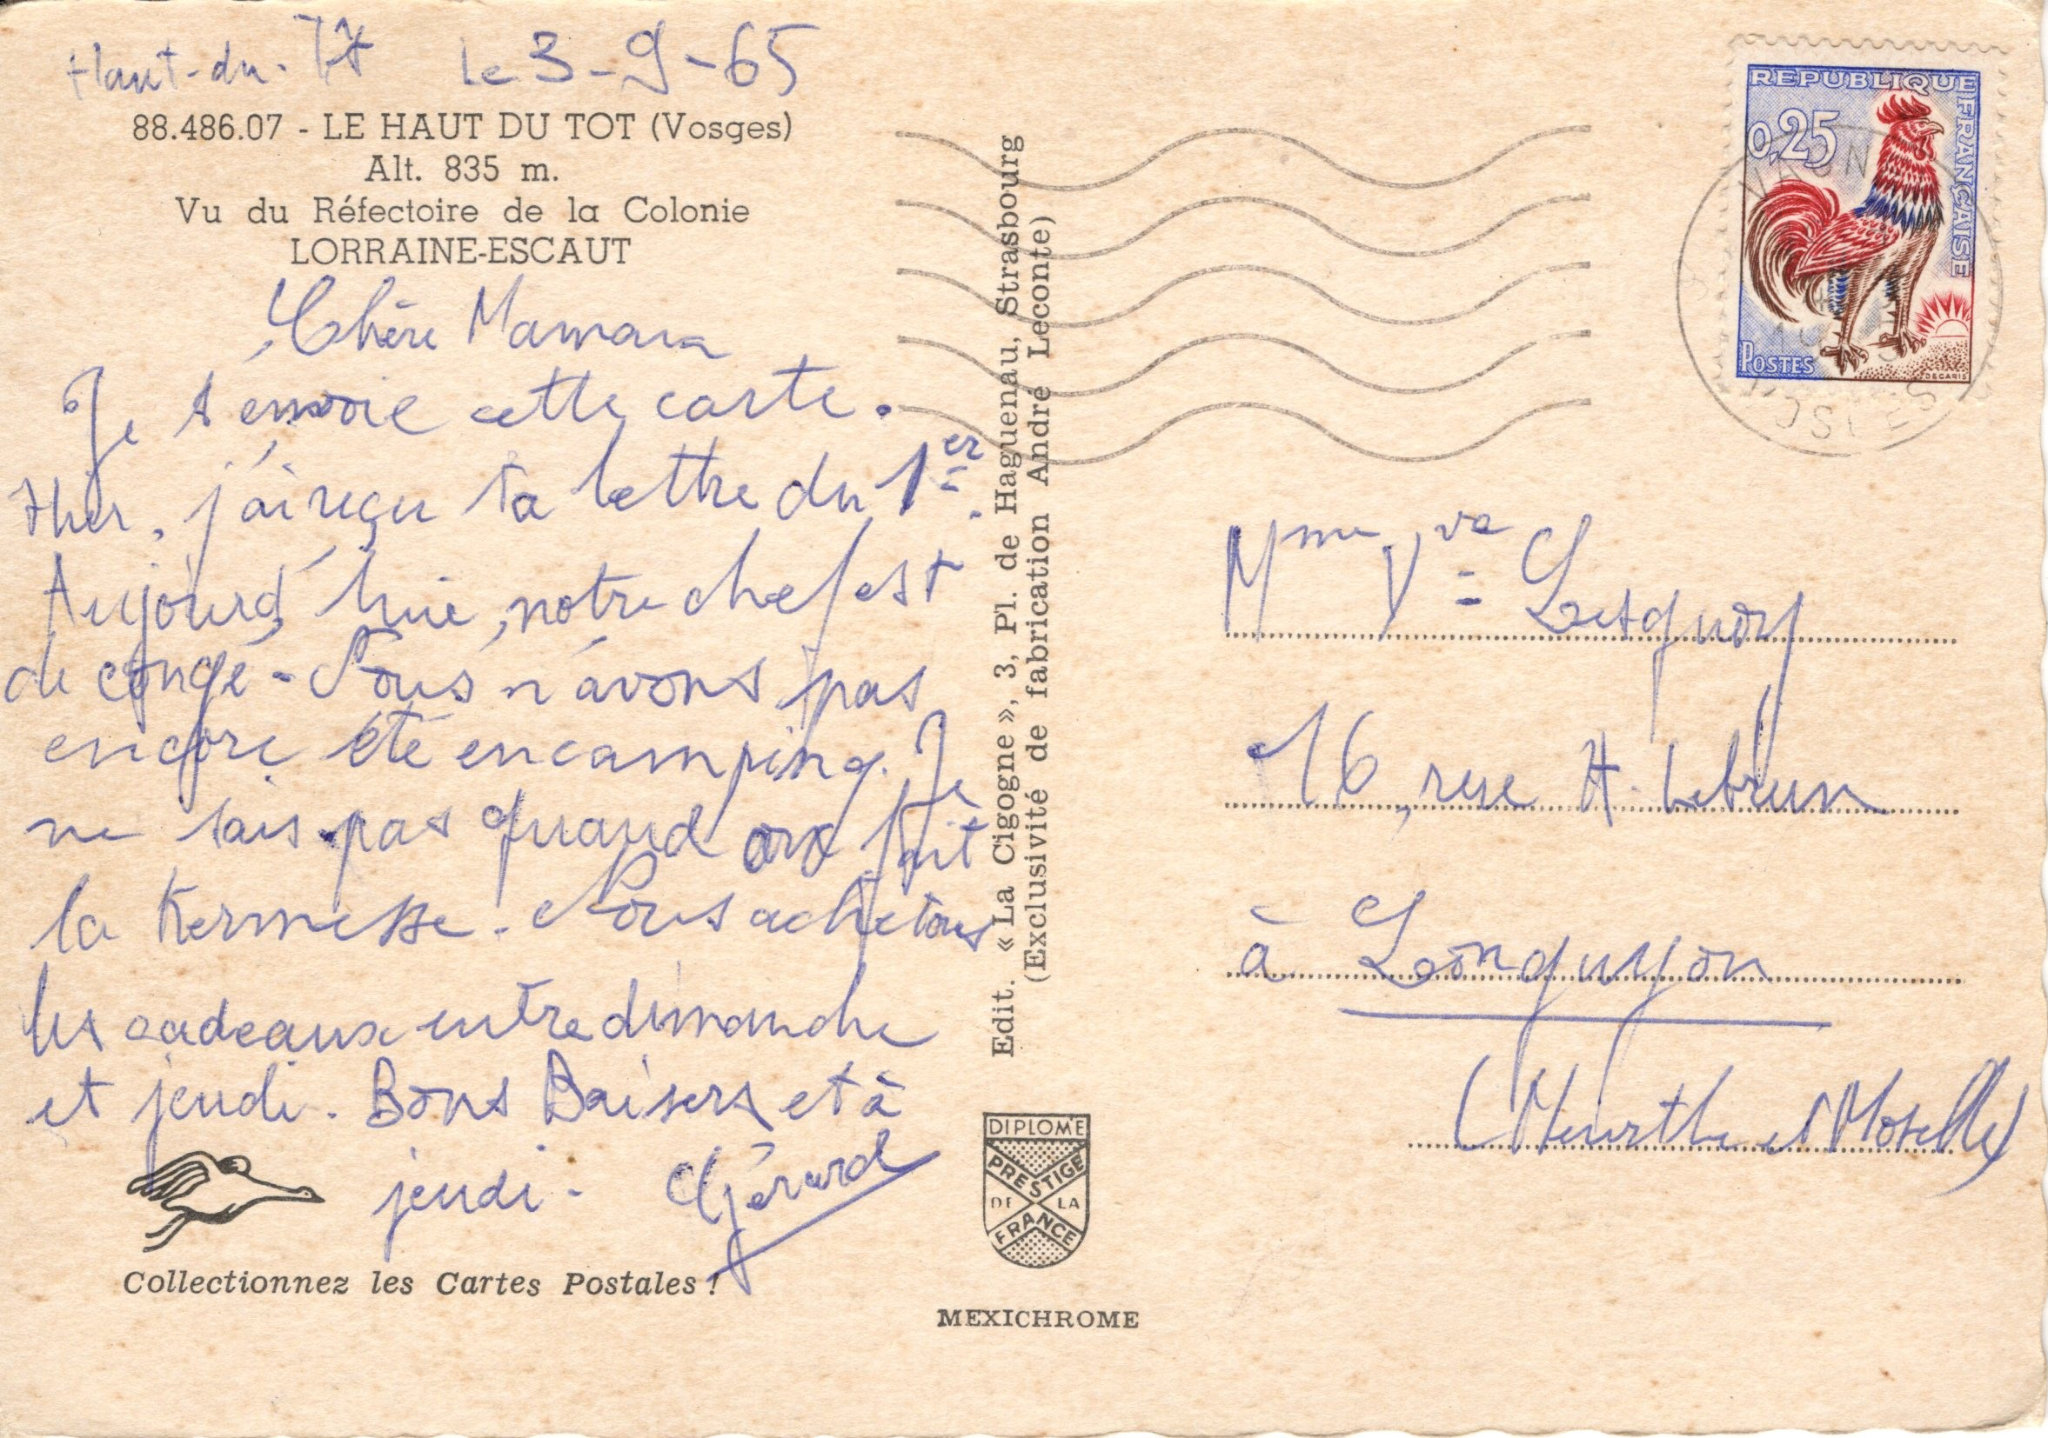 Haut-du-Tôt le 3-9-65
88.486.07 - LE HAUT DU TOT (Vosges)
Alt. 835 m.
Vu du Réfectoire de la Colonie
LORRAINE-ESCAUT
Chère Maman
Je t'envoie cette carte.
Hier, j'ai reçu ta lettre du 1er.
Aujourd'hui, notre chef est
de congé - Nous n'avons pas
encore été en camping. Je
ne sais pas quand on fait
la Kermesse. Nous achetons
les cadeaux entre dimanche
et jeudi. Bons Baisers et à
jeudi - Gérard
Collectionnez les Cartes Postales !
Edit. « La Cigogne », 3, Pl. de Haguenau, Strasbourg
(Exclusivité de fabrication André Leconte)
DIPLOME
PRESTIGE
DE LA
FRANCE
MEXICHROME
REPUBLIQUE FRANÇAISE
0,25
POSTES
DECARIS
VOSGES
Mme Vve Lesquoy
16, rue A. Lebrun
à Longuyon
(Meurthe et Moselle)